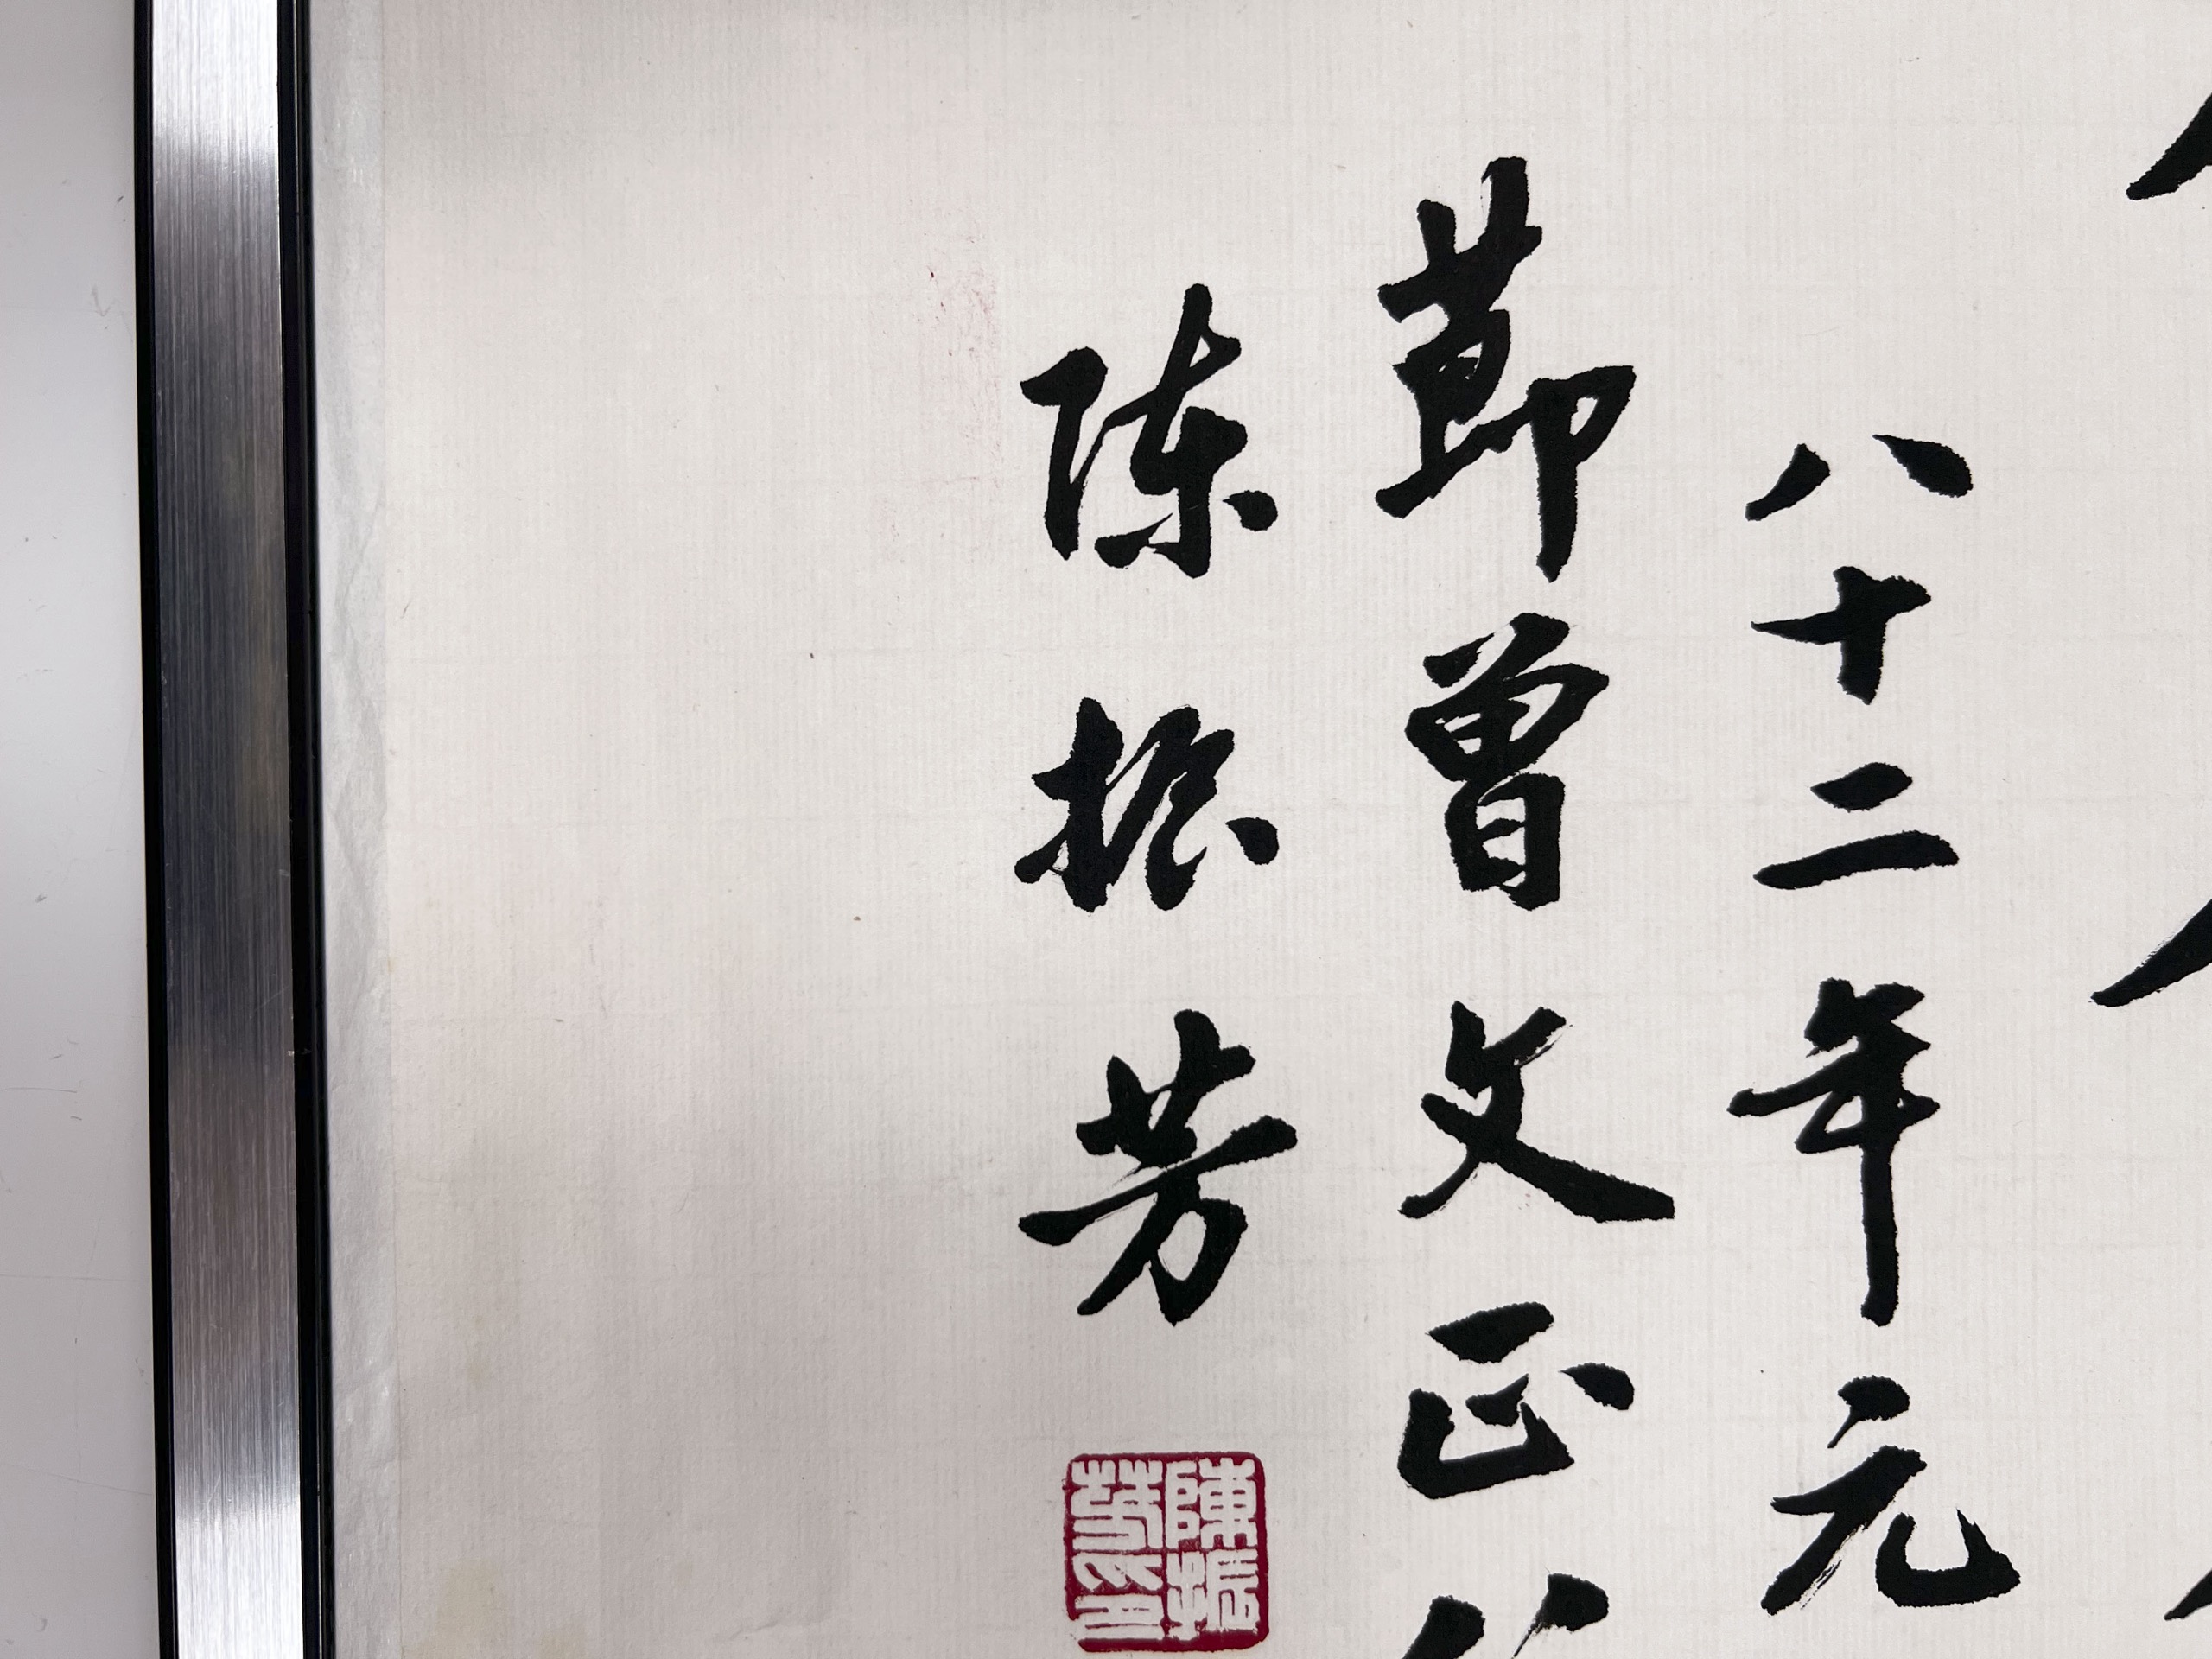 八十二年元
節曾文正公
陳振芳
陳振芳印